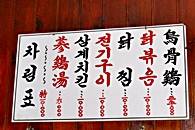 차림표
蔘鷄湯
삼계치킨
전기구이
닭찜
닭볶음
烏骨鷄